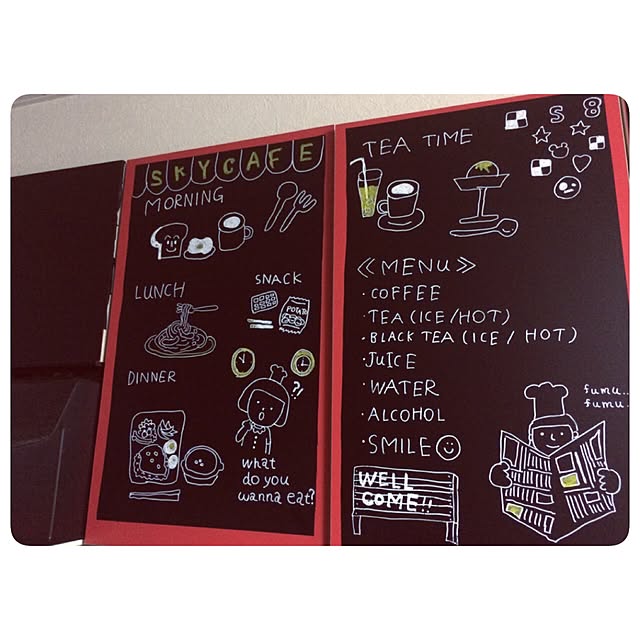 SKYCAFE
MORNING
LUNCH
SNACK
POTATO
DINNER
?!
what
do you
wanna eat?
TEA TIME
S 8
≪MENU≫
・COFFEE
・TEA (ICE/HOT)
・BLACK TEA (ICE / HOT)
・JUICE
・WATER
・ALCOHOL
・SMILE
WELL
COME!!
fumu..
fumu.